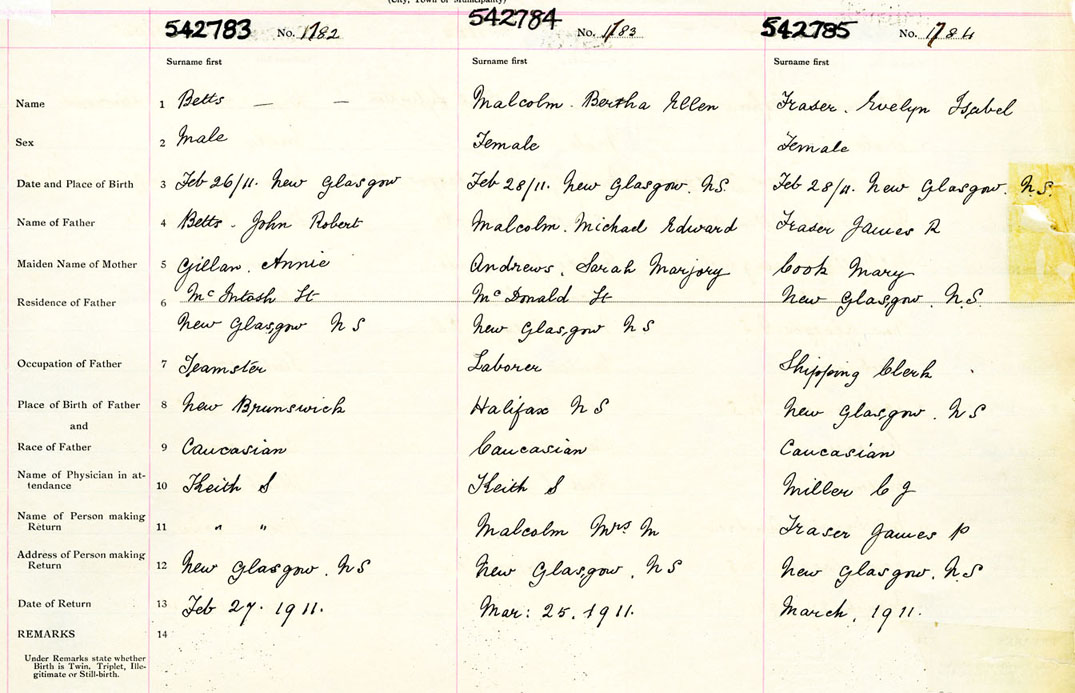 (City, Town or Municipality)
542783 No. 1782 542784 No. 1783 542785 No. 1784
Surname first Surname first Surname first
Name 1 Betts — — Malcolm. Bertha Ellen Fraser. Evelyn Isabel
Sex 2 Male Female Female
Date and Place of Birth 3 Feb 26/11. New Glasgow Feb 28/11. New Glasgow. N.S. Feb 28/11. New Glasgow. N.S.
Name of Father 4 Betts. John Robert Malcolm. Michael Edward Fraser James R
Maiden Name of Mother 5 Gillan. Annie Andrews. Sarah Marjory Cook Mary
Residence of Father 6 McIntosh St McDonald St New Glasgow. N.S.
New Glasgow N S New Glasgow N S
Occupation of Father 7 Teamster Laborer Shipping Clerk
Place of Birth of Father 8 New Brunswick Halifax N S New Glasgow. N S
and
Race of Father 9 Caucasian Caucasian Caucasian
Name of Physician in at-
tendance 10 Keith S Keith S Miller C J
Name of Person making
Return 11 " " Malcolm Mrs M Fraser James R
Address of Person making
Return 12 New Glasgow. N S New Glasgow. N S New Glasgow. N S
Date of Return 13 Feb 27. 1911. Mar: 25. 1911. March. 1911.
REMARKS 14
Under Remarks state whether
Birth is Twin. Triplet, Ille-
gitimate or Still-birth.